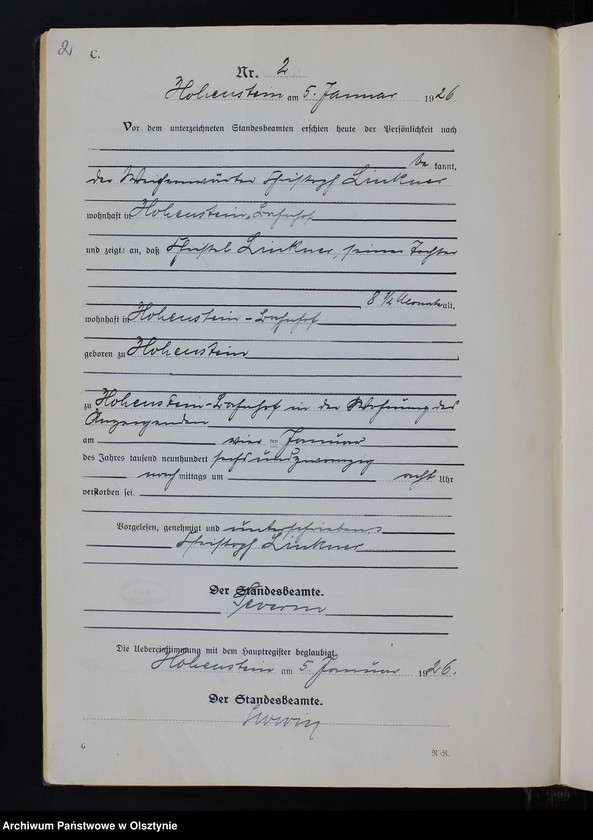 2
C.
Nr. 2
Hohenstein am 5. Januar 1926
Vor dem unterzeichneten Standesbeamten erschien heute der Persönlichkeit nach
be kannt,
der Weichenwärter Christoph Linkner
wohnhaft in Hohenstein-Bahnhof
und zeigte an, daß Christel Linkner, seine Tochter
8 1/2 Monate alt,
wohnhaft in Hohenstein-Bahnhof
geboren zu Hohenstein
zu Hohenstein-Bahnhof in der Wohnung des
Anzeigenden
am vier ten Januar
des Jahres tausend neunhundert sechs und zwanzig
nach mittags um acht Uhr
verstorben sei.
Vorgelesen, genehmigt und unterschrieben
Christoph Linkner
Der Standesbeamte.
Die Uebereinstimmung mit dem Hauptregister beglaubigt
Hohenstein am 5. Januar 1926.
Der Standesbeamte.
G R.-R.
Archiwum Państwowe w Olsztynie